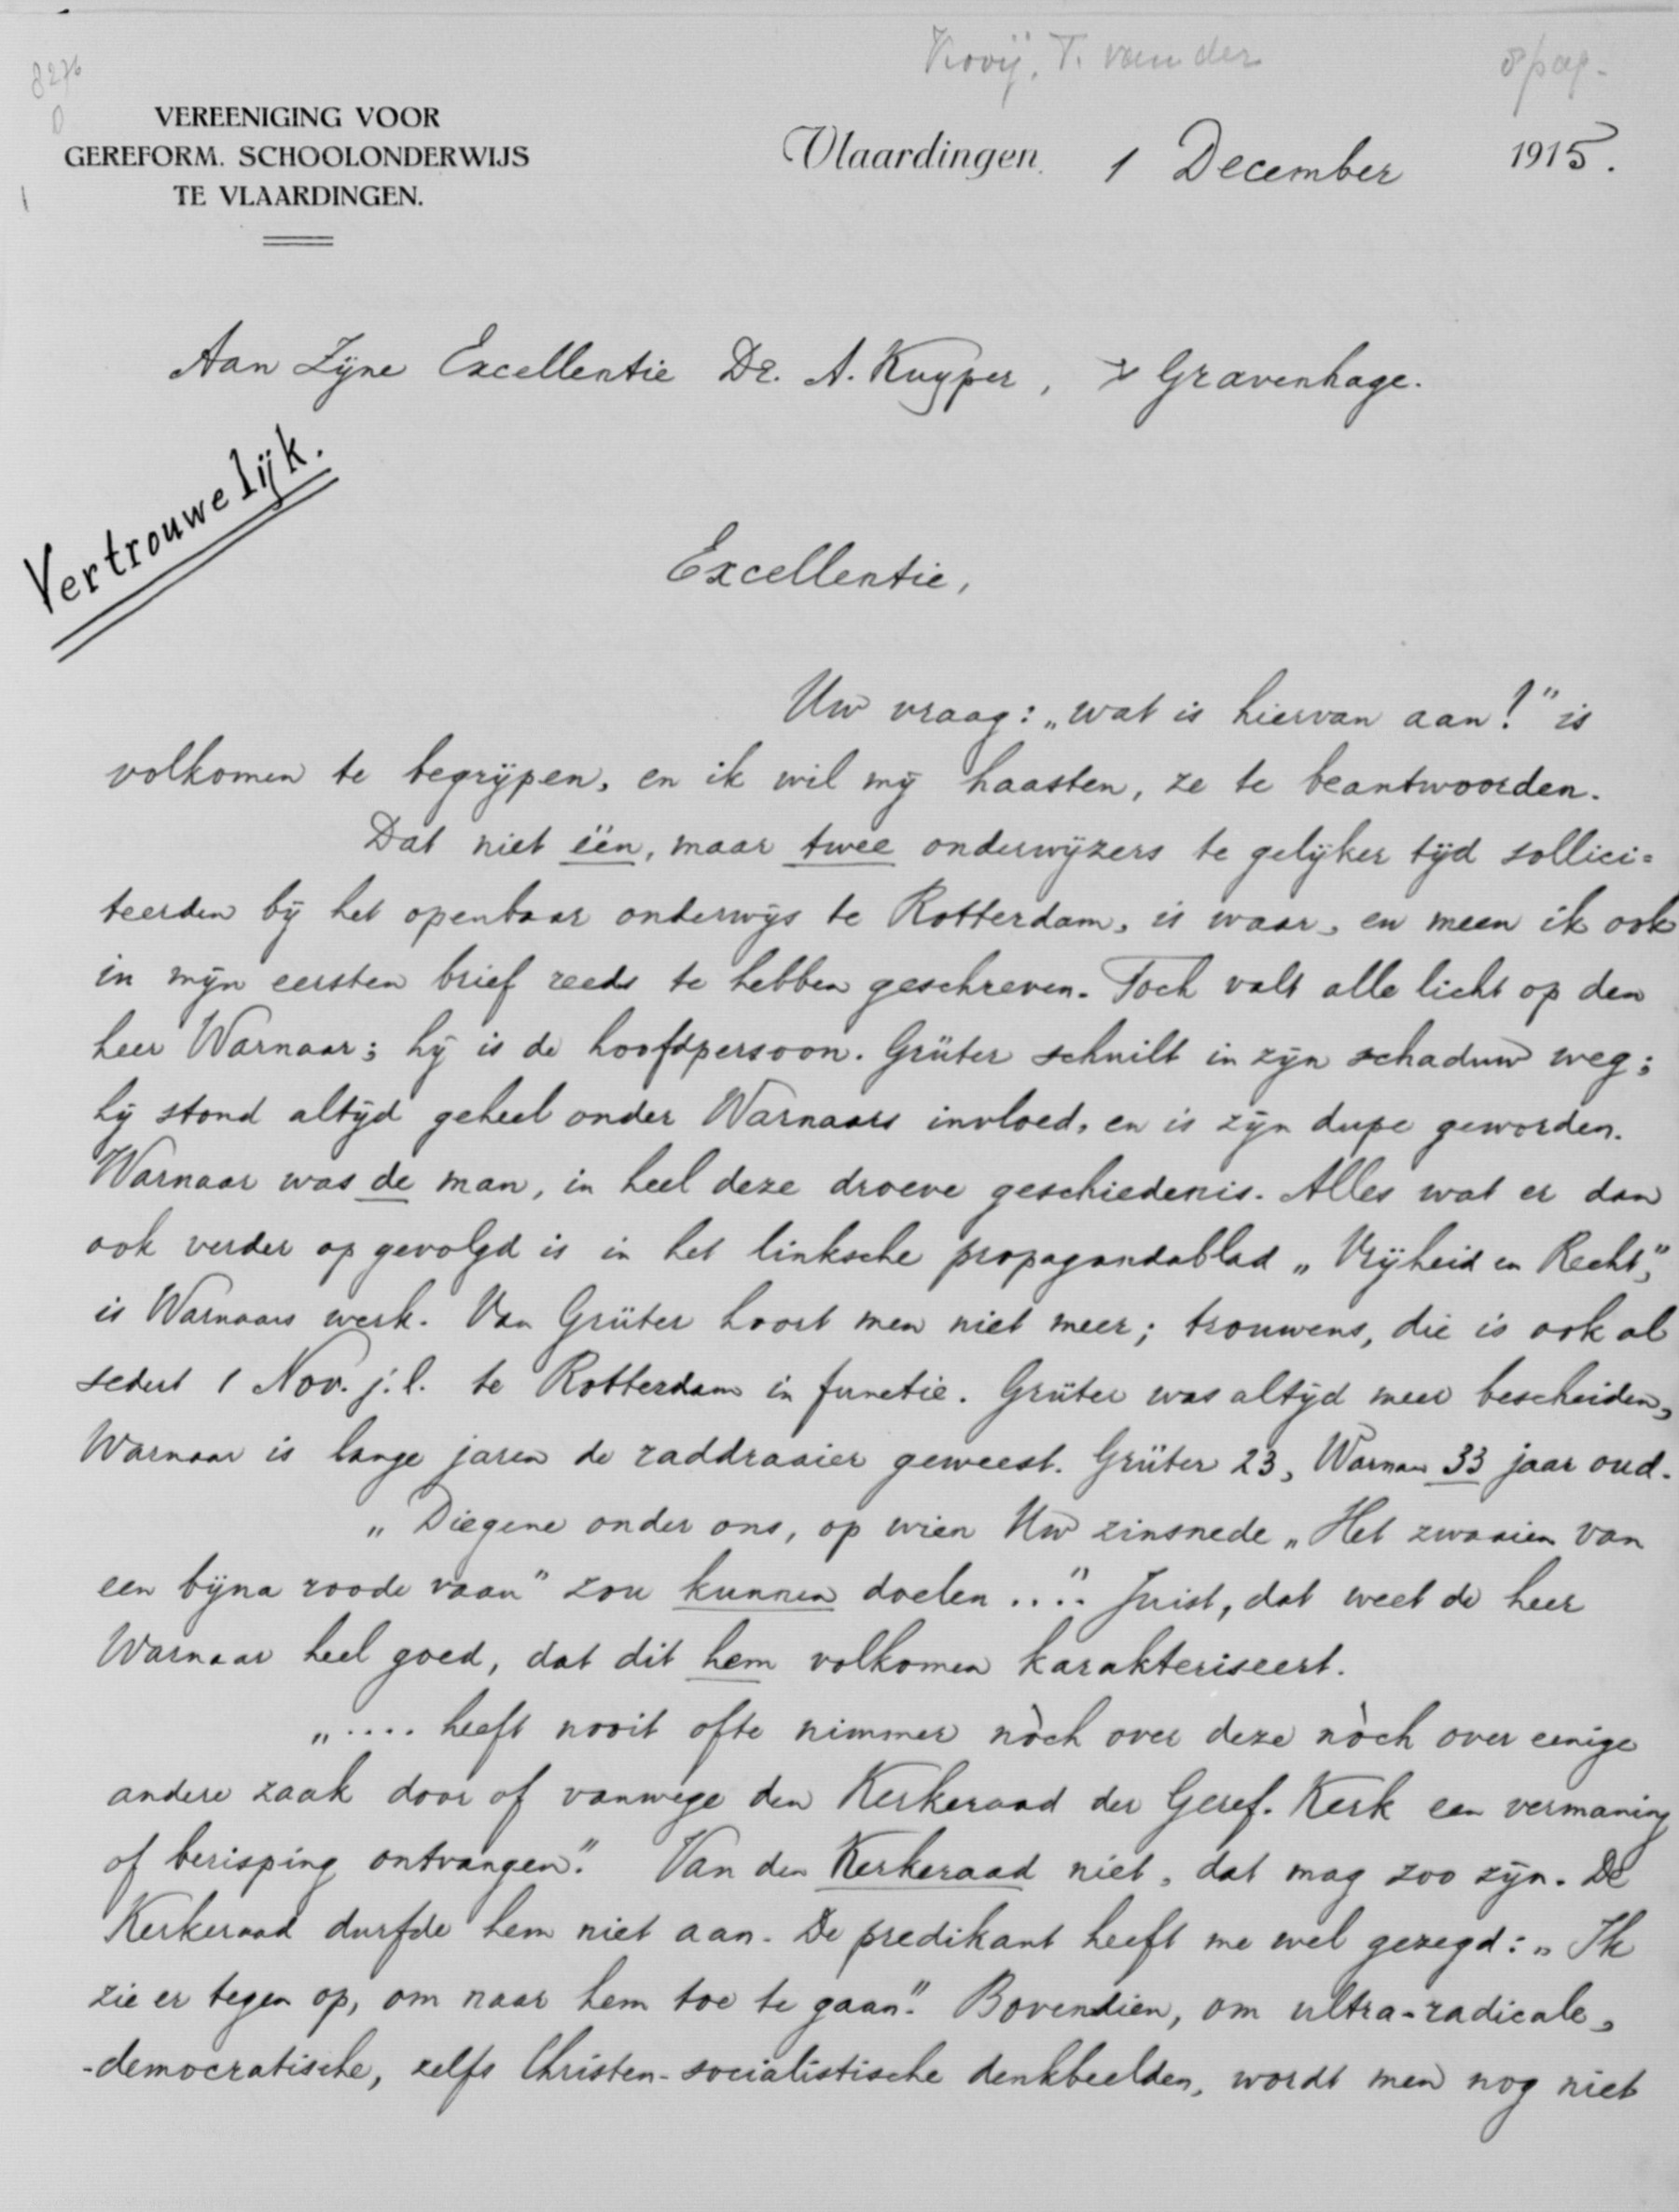 Kooij, T. van der
8 pag.
8276
VEREENIGING VOOR
GEREFORM. SCHOOLONDERWIJS
TE VLAARDINGEN.
Vlaardingen, 1 December 1915.
Aan Zijne Excellentie Dr. A. Kuyper, 's Gravenhage.
Vertrouwelijk.
Excellentie,
Uw vraag: „wat is hiervan aan!" is
volkomen te begrijpen, en ik wil mij haasten, ze te beantwoorden.
Dat niet één, maar twee onderwijzers te gelijker tijd sollici=
teerden bij het openbaar onderwijs te Rotterdam, is waar, en meen ik ook
in mijn eersten brief reeds te hebben geschreven. Toch valt alle licht op den
heer Warnaar; hij is de hoofdpersoon. Grüter schuilt in zijn schaduw weg;
hij stond altijd geheel onder Warnaars invloed, en is zijn dupe geworden.
Warnaar was de man, in heel deze droeve geschiedenis. Alles wat er dan
ook verder op gevolgd is in het linksche propagandablad „Vrijheid en Recht",
is Warnaars werk. Van Grüter hoort men niet meer; trouwens, die is ook al
sedert 1 Nov. j.l. te Rotterdam in functie. Grüter was altijd meer bescheiden,
Warnaar is lange jaren de raddraaier geweest. Grüter 23, Warnaar 33 jaar oud.
„Diegene onder ons, op wien Uw zinsnede „Het zwaaien van
een bijna roode vaan" zou kunnen doelen ....". Juist, dat weet de heer
Warnaar heel goed, dat dit hem volkomen karakteriseert.
„.... heeft nooit ofte nimmer nòch over deze nòch over eenige
andere zaak door of vanwege den Kerkeraad der Geref. Kerk een vermaning
of berisping ontvangen". Van den Kerkeraad niet, dat mag zoo zijn. De
Kerkeraad durfde hem niet aan. De predikant heeft me wel gezegd: „Ik
zie er tegen op, om naar hem toe te gaan". Bovendien, om ultra-radicale,
-democratische, zelfs Christen-socialistische denkbeelden, wordt men nog niet